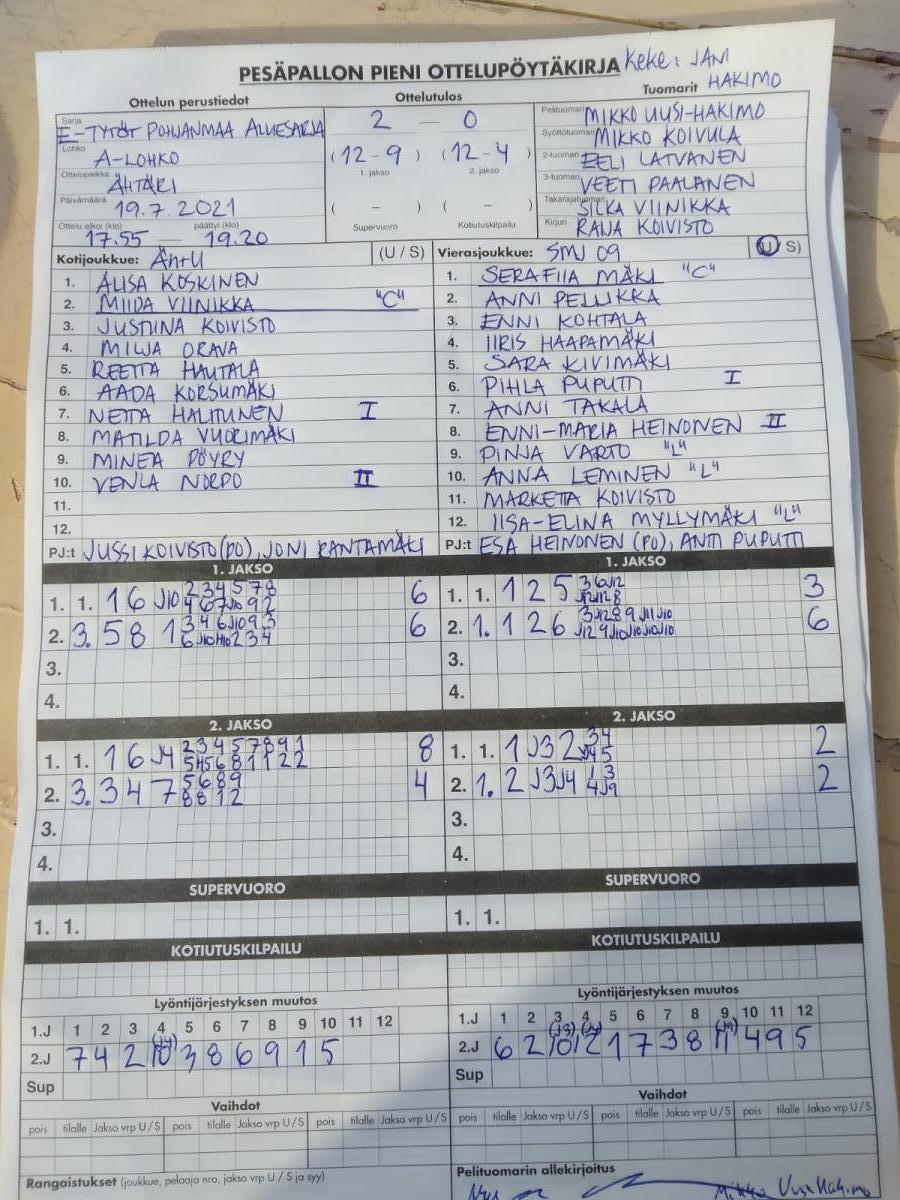 PESÄPALLON PIENI OTTELUPÖYTÄKIRJA Keke: JANI HAKIMO
Ottelun perustiedot Ottelutulos Tuomarit
Sarja E-TYTÖT POHJANMAA ALUESARJA
Lohko A-LOHKO
Ottelupaikka ÄHTÄRI
Päivämäärä 19.7.2021
Ottelu alkoi (klo) päättyi (klo)
17.55 — 19.20
2 — 0
(12-9) (12-4)
1. jakso 2. jakso
( - ) ( - )
Supervuoro Kotiutuskilpailu
Pelituomari MIKKO UUSI-HAKIMO
Syöttötuomari MIKKO KOIVULA
2-tuomari EELI LATVANEN
3-tuomari VEETI PAALANEN
Takarajatuomari SILKA VIINIKKA
Kirjuri RAIJA KOIVISTO
Kotijoukkue: ÄhtU (U / S)
1. ALISA KOSKINEN
2. MIIDA VIINIKKA "C"
3. JUSTIINA KOIVISTO
4. MILJA ORAVA
5. REETTA HAUTALA
6. AADA KORSUMÄKI
7. NETTA HALTTUNEN I
8. MATILDA VUORIMÄKI
9. MINEA PÖYRY
10. VENLA NORPO II
11.
12.
PJ:t JUSSI KOIVISTO (PO), JONI RANTAMÄKI
Vierasjoukkue: SMJ 09 (U / S)
1. SERAFIIA MÄKI "C"
2. ANNI PELLIKKA
3. ENNI KOHTALA
4. IIRIS HAAPAMÄKI
5. SARA KIVIMÄKI
6. PIHLA PUPUTTI I
7. ANNI TAKALA
8. ENNI-MARIA HEINONEN II
9. PINJA VARTO "L"
10. ANNA LEMINEN "L"
11. MARKETTA KOIVISTO
12. IISA-ELINA MYLLYMÄKI "L"
PJ:t ESA HEINONEN (PO), ANTTI PUPUTTI
1. JAKSO
1. 1. 1 6 J10 2 3 4 5 7 8 6
4 6 7 J10 9 2
2. 3. 5 8 1 3 4 6 J10 9 3 6
3.
4.
1. JAKSO
1. 1. 1 2 5 3 6 J12 3
2. 1. 1 2 6 6
3.
4.
2. JAKSO
1. 1. 1 6 J4 2 3 4 5 7 8 9 1 8
5 H5 6 8 1 1 2 2
2. 3. 3 4 7 5 6 8 9 4
8 8 1 2
3.
4.
2. JAKSO
1. 1. 1 J3 2 3 4 2
J4 5
2. 1. 2 J3 J4 1 3 2
4 J9
3.
4.
SUPERVUORO
1. 1.
SUPERVUORO
1. 1.
KOTIUTUSKILPAILU
KOTIUTUSKILPAILU
Lyöntijärjestyksen muutos
1.J 1 2 3 4 5 6 7 8 9 10 11 12
(J4)
2.J 7 4 2 10 3 8 6 9 1 5
Sup
Lyöntijärjestyksen muutos
1.J 1 2 3 4 5 6 7 8 9 10 11 12
(J3) (J4) (J9)
2.J 6 2 10 12 1 7 3 8 11 4 9 5
Sup
Vaihdot
pois tilalle Jakso vrp U / S pois tilalle Jakso vrp U / S pois tilalle Jakso vrp U / S
Vaihdot
pois tilalle Jakso vrp U / S pois tilalle Jakso vrp U / S pois tilalle Jakso vrp U / S
Rangaistukset (joukkue, pelaaja nro, jakso vrp U / S ja syy)
Pelituomarin allekirjoitus
Mikko Uusi-Hakimo